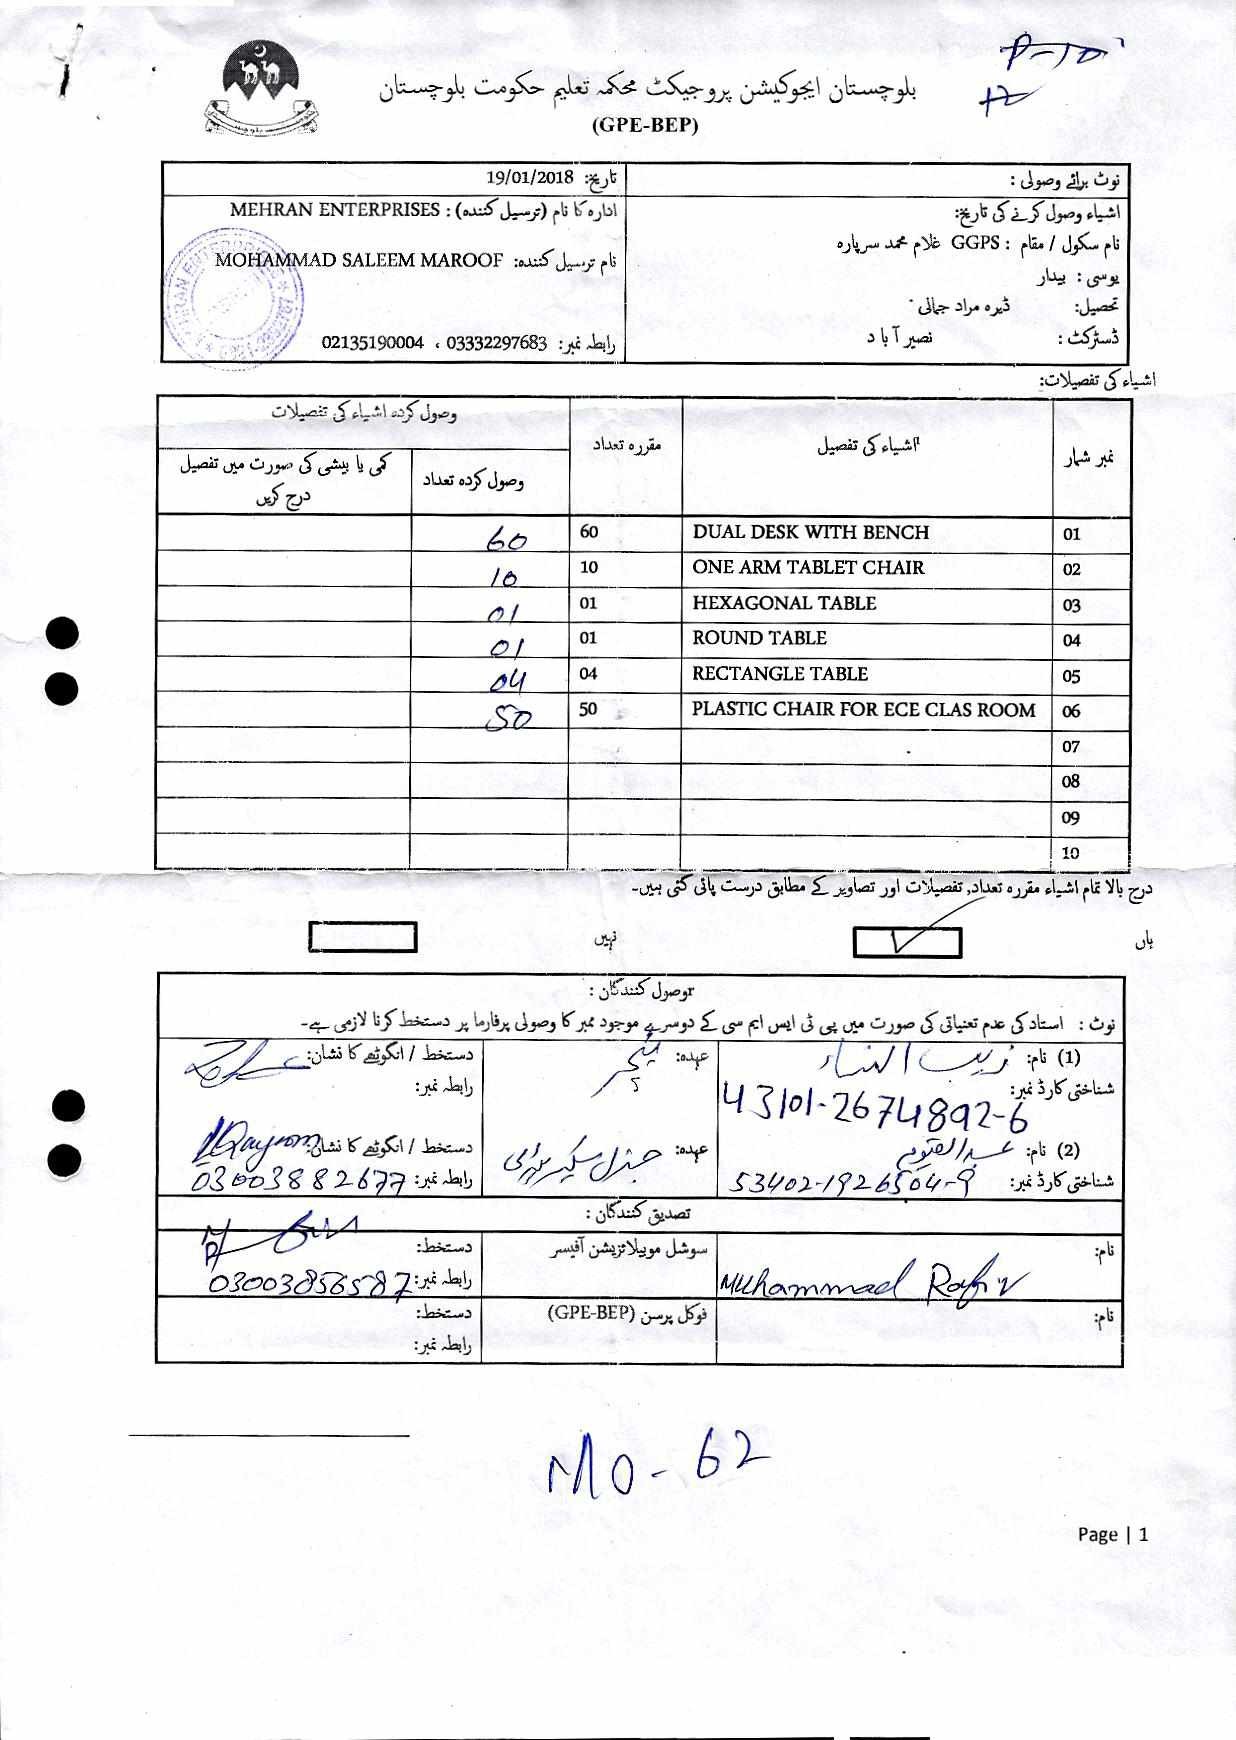 P-10
12
بلوچستان ایجوکیشن پروجیکٹ محکمہ تعلیم حکومت بلوچستان
(GPE-BEP)
نوٹ برائے وصولی :
تاریخ: 19/01/2018
اشیاء وصول کرنے کی تاریخ:
ادارہ کا نام (ترسیل کنندہ) : MEHRAN ENTERPRISES
نام سکول / مقام : GGPS غلام محمد سرپارہ
نام ترسیل کنندہ: MOHAMMAD SALEEM MAROOF
یوسی : بیدار
تحصیل: ڈیرہ مراد جمالی
ڈسڑکٹ : نصیر آباد
رابطہ نمبر: 03332297683 ، 02135190004
اشیاء کی تفصیلات:
نمبر شمار اشیاء کی تفصیل مقررہ تعداد وصول کردہ اشیاء کی تفصیلات
وصول کردہ تعداد کمی یا بیشی کی صورت میں تفصیل درج کریں
01 DUAL DESK WITH BENCH 60 60
02 ONE ARM TABLET CHAIR 10 10
03 HEXAGONAL TABLE 01 01
04 ROUND TABLE 01 01
05 RECTANGLE TABLE 04 04
06 PLASTIC CHAIR FOR ECE CLAS ROOM 50 50
07
08
09
10
درج بالا تمام اشیاء مقررہ تعداد, تفصیلات اور تصاویر کے مطابق درست پائی گئی ہیں۔
ہاں نہیں
وصول کنندگان :
نوٹ : استاد کی عدم تعیناتی کی صورت میں پی ٹی ایس ایم سی کے دوسرے موجود ممبر کا وصولی پرفارما پر دستخط کرنا لازمی ہے۔
(1) نام: زیب النساء عہدہ: ٹیچر دستخط / انگوٹھے کا نشان:
شناختی کارڈ نمبر: 43101-2674892-6 رابطہ نمبر:
(2) نام: عبدالقیوم عہدہ: جنرل سیکریٹری دستخط / انگوٹھے کا نشان:
شناختی کارڈ نمبر: 53402-1926504-9 رابطہ نمبر: 03003882677
تصدیق کنندگان :
نام: Muhammad Rafiv سوشل موبیلائزیشن آفیسر دستخط:
رابطہ نمبر: 03003856587
نام: فوکل پرسن (GPE-BEP) دستخط:
رابطہ نمبر:
MO-62
Page | 1